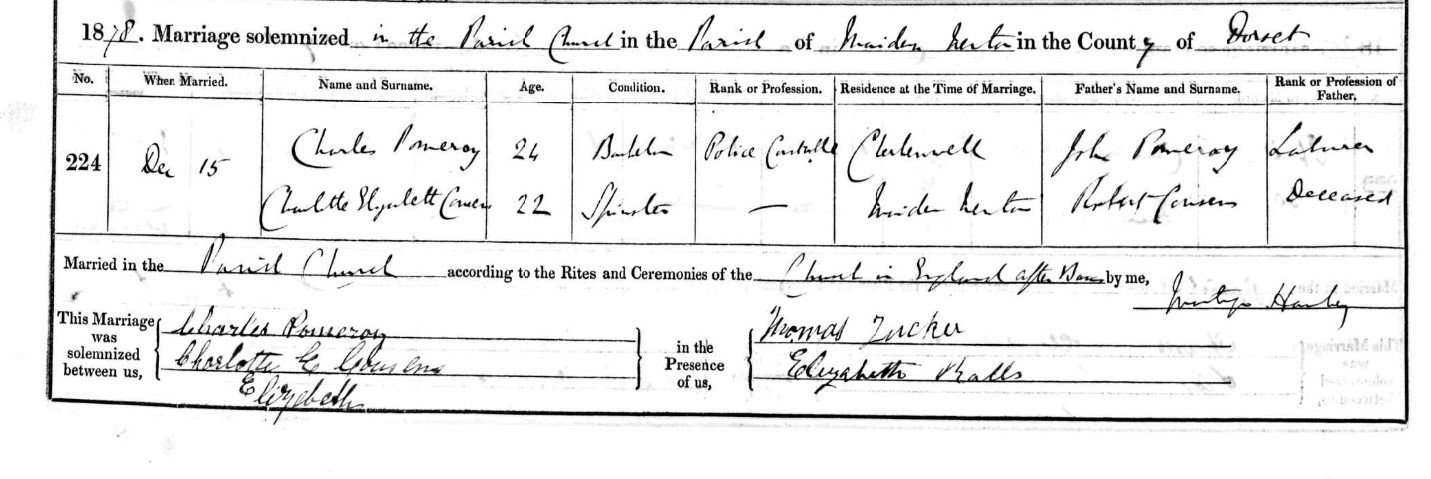 1878. Marriage solemnized in the Parish Church in the Parish of Maiden Newton in the County of Dorset
No. When Married. Name and Surname. Age. Condition. Rank or Profession. Residence at the Time of Marriage. Father's Name and Surname. Rank or Profession of Father.
224 Dec 15 Charles Pomeroy 24 Bachelor Police Constable Clerkenwell John Pomeroy Labourer
Charlotte Elizabeth Cousens 22 Spinster — Maiden Newton Robert Cousens Deceased
Married in the Parish Church according to the Rites and Ceremonies of the Church in England after Banns by me,
This Marriage was solemnized between us, Charles Pomeroy
Charlotte E Cousens
Elizabeth
in the Presence of us, Thomas Tucker
Elizabeth Ralls